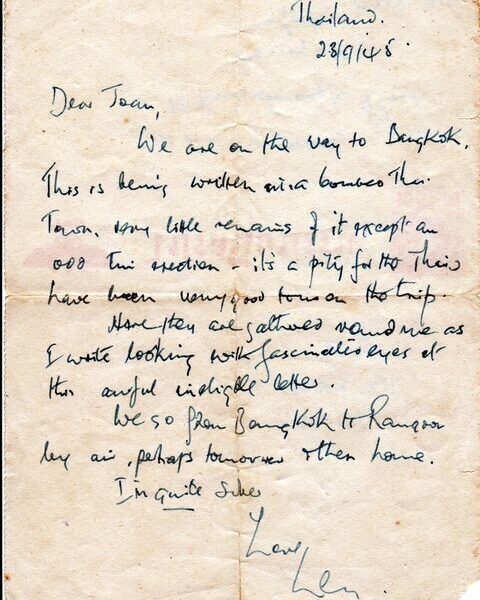 Thailand.
23/9/45.
Dear Joan,
We are on the way to Bangkok.
This is being written in a bombed Thai
Town. Very little remains of it except an
odd Tin erection - it's a pity for the Thais
have been very good to us on the trip.
Here they are gathered round me as
I write looking with fascinated eyes at
this awful illegible letter.
We go from Bangkok to Rangoon
by air, perhaps tomorrow & then home.
I'm quite sober
Love
Len.